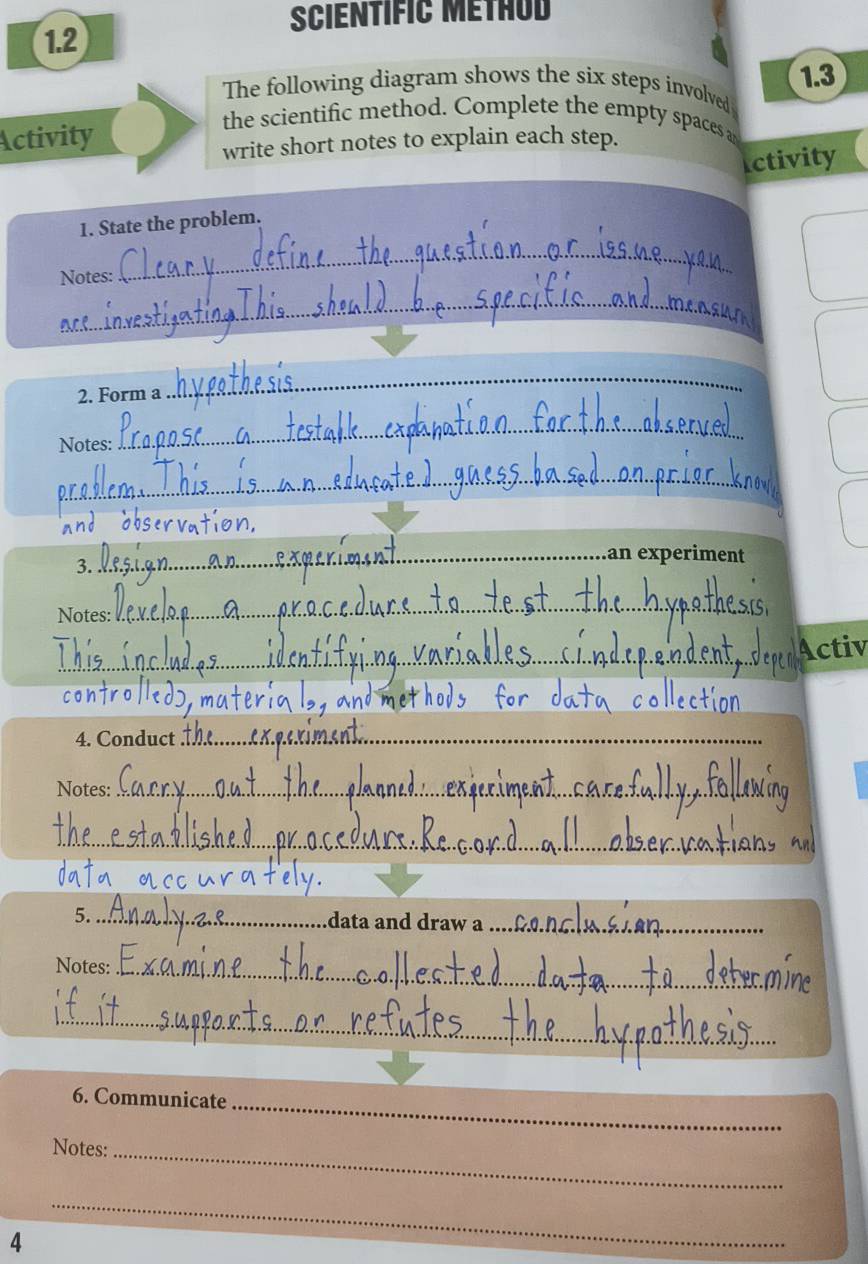 SCIENTIFIC METHOD
1.2
1.3
Activity
The following diagram shows the six steps involved
the scientific method. Complete the empty spaces
write short notes to explain each step.
ctivity
1. State the problem.
Notes: Cleary define the question or issue you
are investigating This should be specific and measur
2. Form a hypothesis
Notes: Propose a testable explanation for the observed
problem. This is an educated guess based on prior know
and observation.
3. Design an experiment an experiment
Notes: Develop a procedure to test the hypothesis.
This includes identifying variables (independent, depen
controlled), materials, and methods for data collection
Activ
4. Conduct the experiment.
Notes: Carry out the planned experiment carefully, following
the established procedure. Record all observations and
data accurately.
5. Analyze data and draw a conclusion
Notes: Examine the collected data to determine
if it supports or refutes the hypothesis
6. Communicate
Notes:
4